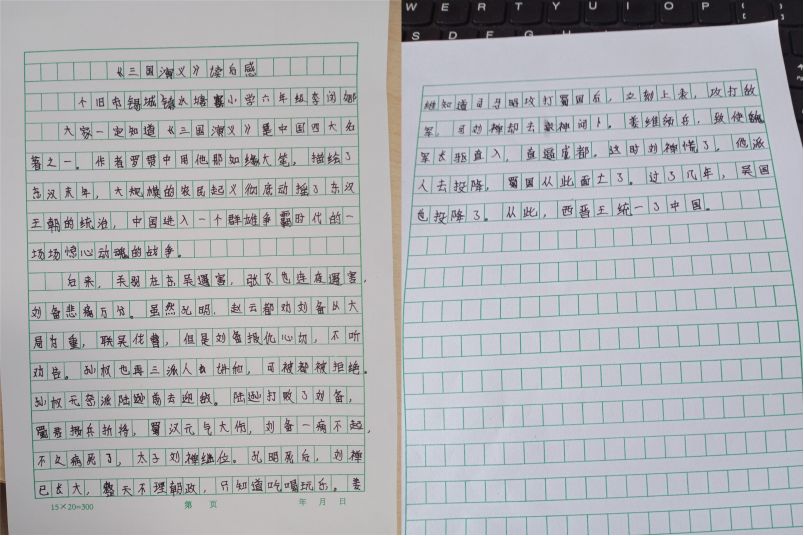 《三国演义》读后感
个旧市锡城镇水塘寨小学六年级李闵娜
大家一定知道《三国演义》是中国四大名
著之一。作者罗贯中用他那如椽大笔，描绘了
东汉末年，大规模的农民起义彻底动摇了东汉
王朝的统治，中国进入一个群雄争霸时代的一
场场惊心动魂的战争。
后来，关羽在东吴遇害，张飞也连夜遇害，
刘备悲痛万分。虽然孔明、赵云都劝刘备以大
局为重，联吴伐曹，但是刘备报仇心切，不听
劝告。孙权也再三派人去讲和，可被都被拒绝。
孙权无奈派陆逊前去迎敌。陆逊打败了刘备，
蜀君损兵折将，蜀汉元气大伤，刘备一病不起，
不久病死了，太子刘禅继位。孔明死后，刘禅
已长大，整天不理朝政，只知道吃喝玩乐。姜
15×20=300 第 页 年 月 日
WERTYUIOP
SDFGHJKL
维知道司马昭攻打蜀国后，立刻上表，攻打敌
军，可刘禅却去求神问卜。姜维物兵，致使魏
军长驱直入，直逼成都。这时刘禅慌了。他派
人去投降，蜀国从此面亡了。过了几年，吴国
也投降了。从此，西晋王统一了中国。